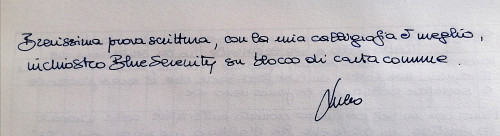 Brevissima prova scrittura, con la mia calligrafia è meglio,
inchiostro Blue Serenity su blocco di carta comune.